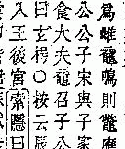 爲雌黿鳴則鼈應
公公子宋與子家
食大夫黿召子公
曰玄枵○按云辰
入王後宮索隱曰